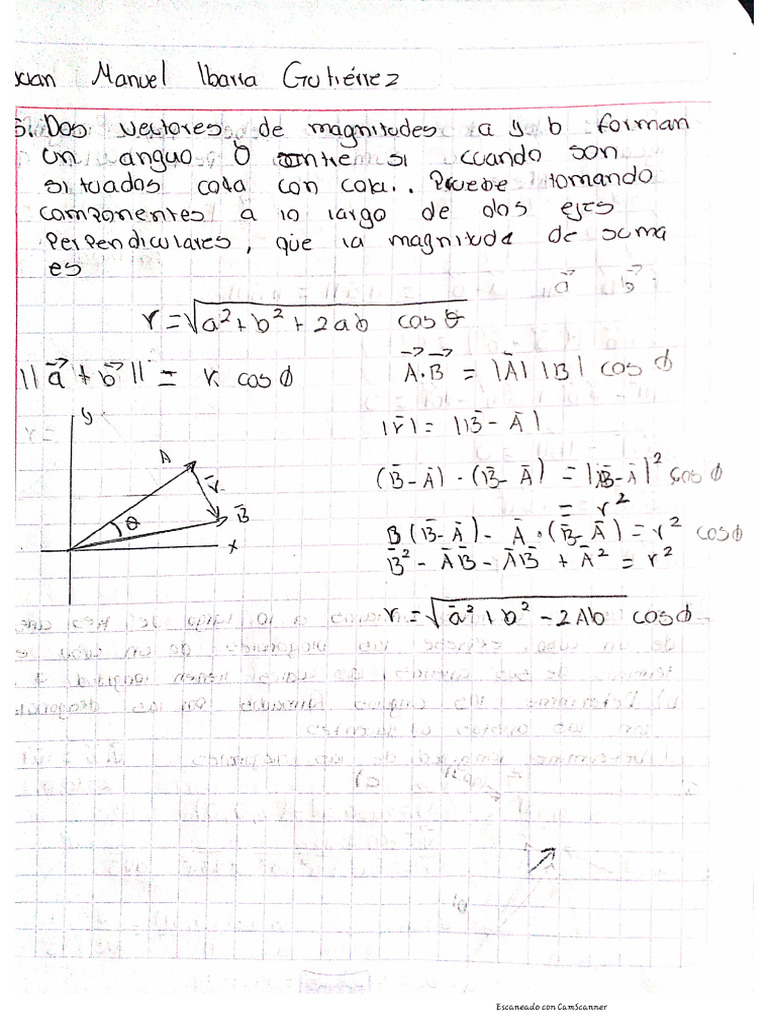 Manuel Ibarra Gutiérrez
5. Dos vectores de magnitudes a y b forman
un anguo θ entre si cuando son
situados cola con cola.. Pruebe tomando
componentes a lo largo de dos ejes
Perpendiculares, que la magnitude de suma
es
a⃗ b⃗
r = √(a² + b² + 2ab cos θ)
||a⃗ + b⃗|| = r cos ϕ
A⃗·B⃗ = |Ā| |B| cos ϕ
y
|r̄| = |B̄ - Ā|
A
r̄
(B̄ - Ā) · (B̄ - Ā) = |B̄ - Ā|² cos ϕ
= r²
B̄
θ
x
B(B̄ - Ā) - Ā · (B̄ - Ā) = r² cos ϕ
B̄² - ĀB̄ - ĀB̄ + Ā² = r²
r = √(ā² + b² - 2Ab) cos ϕ
Escaneado con CamScanner